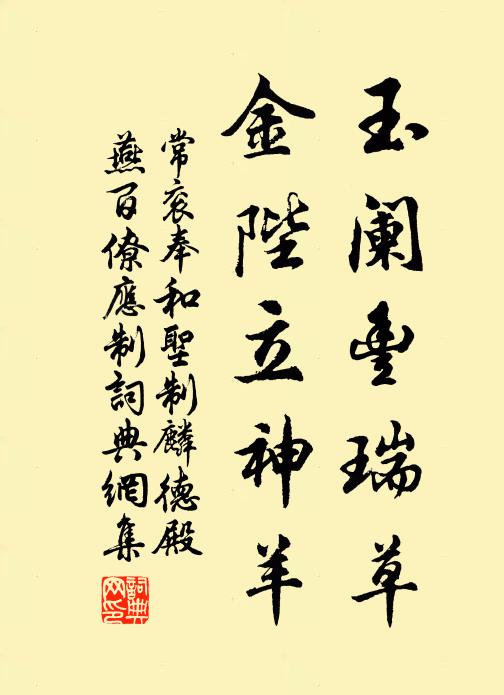 玉阑丰瑞草
金陛立神羊
常衮奉和聖制麟德殿
燕百僚應制詞典網集
詞典网印